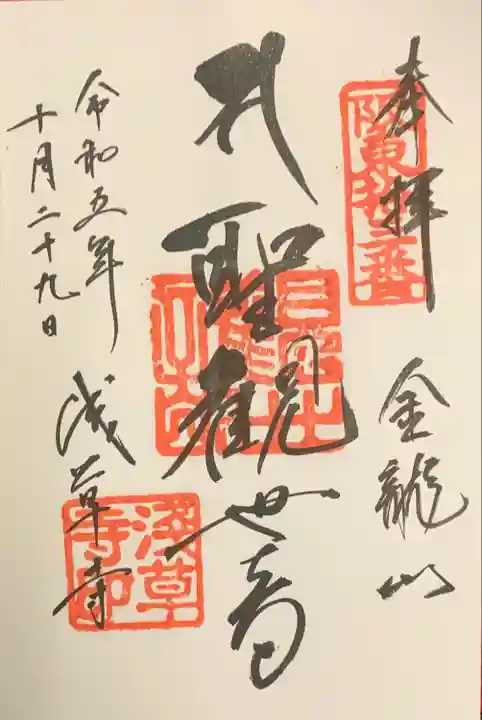 奉拝
金龍山
聖観世音
浅草寺
令和五年
十月二十九日
阪東拾三番
淺草寺印